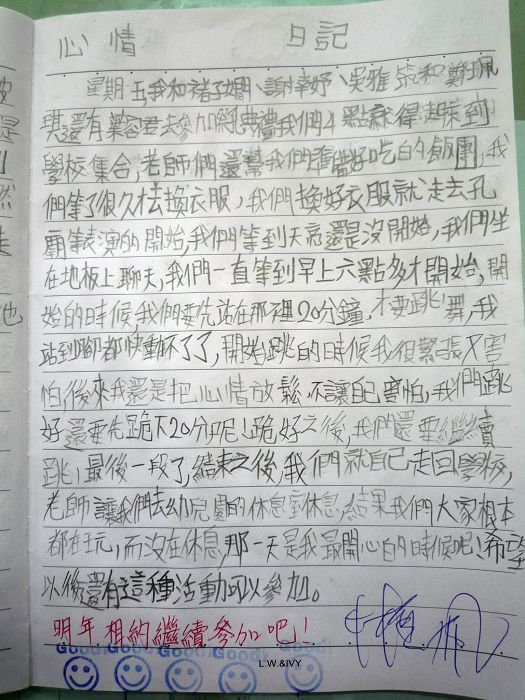 心情 日記
星期五我和褚子嫺、謝幸妤、吳雅筑和鄭珮
琪還有葉容君去參加祭孔典禮我們4點就得起床到
學校集合,老師們還幫我們準備好吃的飯團,我
們等了很久去換衣服,我們換好衣服就走去孔
廟等表演的開始,我們等到天亮還是沒開始,我們坐
在地板上聊天,我們一直等到早上六點多才開始,開
始的時候,我們要先站在那裡20分鐘,才要跳舞,我
站到腳都快動不了了,開始跳的時候我很緊張又害
怕,後來我還是把心情放鬆,不讓自己害怕,我們跳
好還要先跪下20分呢!跪好之後,我們還要繼續
跳,最後一段了,結束之後,我們就自己走回學校,
老師讓我們去幼兒園的休息室休息,結果我們大家根本
都在玩,而沒在休息,那一天是我最開心的時候呢、希望
以後還有這種活動可以參加。
明年相約繼續參加吧!!
Good! Good! Good! Good! Good!
L.W.&IVY